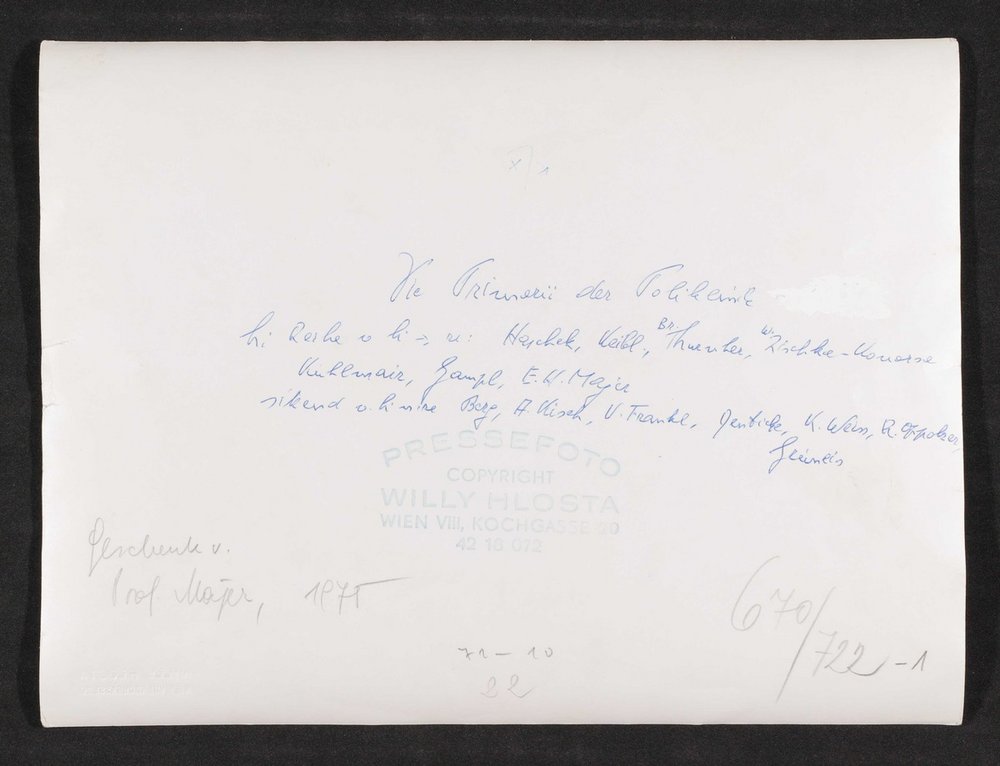 x/1
Die Primarii der Poliklinik
hi Reihe v li → re: Haschek, Keibl, Br. Thurnher, W. Zischka-Konorsa
Kuhlmair, Gampl, E.H. Majer
sitzend v. li n re Berg, A. Kisch, V. Frankl, K. Weiss, R. Oppolzer,
PRESSEFOTO
COPYRIGHT
WILLY HLOSTA
WIEN VIII, KOCHGASSE 20
42 16 072
Geschenk v.
Prof. Majer, 1975
670/
722-1
72-10
22